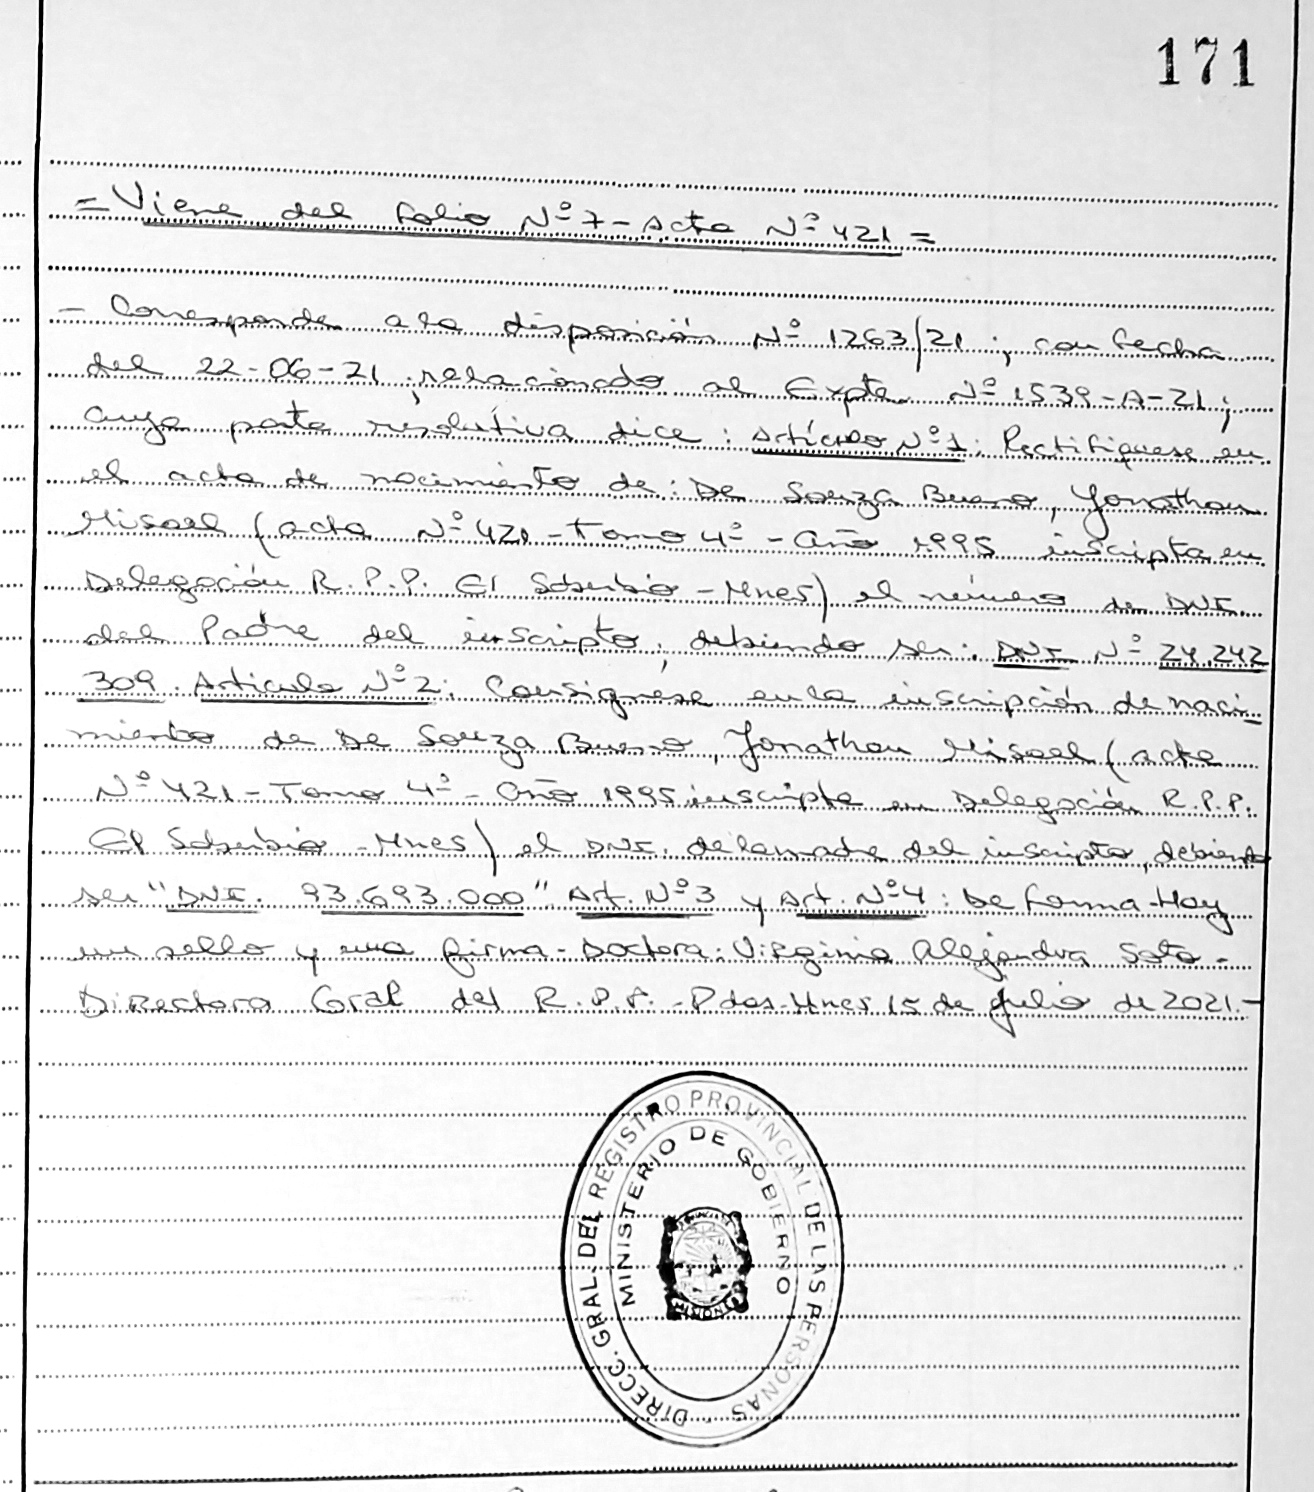 171
= Viene del folio Nº 7 - Acta Nº 421 =
- Corresponde a la disposición Nº 1263/21 ; con fecha
del 22-06-21 ; relacionado al Expte Nº 1539-A-21 ;
cuya parte resolutiva dice : Artículo Nº 1 : Rectifíquese en
el acta de nacimiento de : De Souza Bueno, Jonathan
Misael ( acta Nº 421 - Tomo 4º - Año 1995 inscripta en
Delegación R.P.P. El Soberbio - Mnes) el número de DNI
del Padre del inscripto , debiendo ser : DNI Nº 24.242
309. Articulo Nº 2 : Consignese en la inscripción de naci-
miento de De Souza Bueno, Jonathan Misael ( acta
Nº 421 - Tomo 4º - Año 1995 inscripta en Delegación R.P.P.
El Soberbio - Mnes) el DNI. de la madre del inscripto, debiendo
ser " DNI. 93.693.000 " Art. Nº 3 y Art. Nº 4 : De forma - Hay
un sello y una firma - Doctora : Virginia Alejandra Soto -
Directora Gral del R.P.P. - Pdas - Mnes 15 de Julio de 2021.-
DIRECC. GRAL. DEL REGISTRO PROVINCIAL DE LAS PERSONAS
MINISTERIO DE GOBIERNO
MISIONES